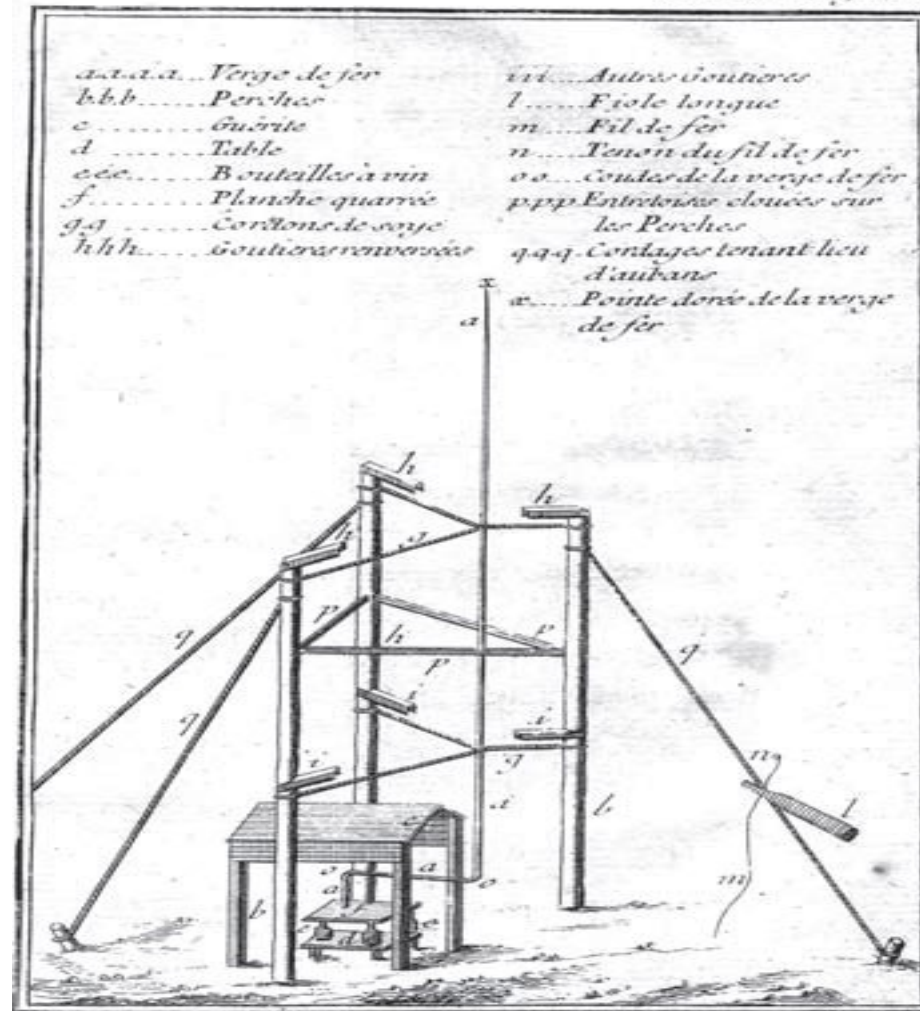 a.a.a.a....Verge de fer
b.b.b.......Perches
c ..........Guérite
d ..........Table
e.e.e.......Bouteilles à vin
f...........Planche quarrée
g.g ........Cordons de soye
h.h.h......Goutieres renversées
i.i.i.....Autres Goutieres
l ......Fiole longue
m .....Fil de fer
n......Tenon du fil de fer
o o....Coudes de la verge de fer
p.p.p. Entretoises clouées sur
les Perches
q.q.q. Cordages tenant lieu
d'aubans
x.....Pointe dorée de la verge
de fer
x
a
h
h
h
g
p
h
p
p
q
q
q
i
i
i
g
n
l
i
b
c
o
a
o
a
m
b
e
d
e